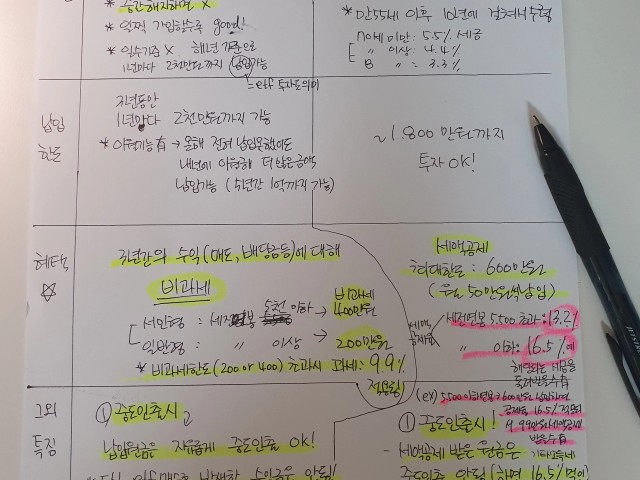 * 중간해지하면 X
* 일찍 가입할수록 good!
* 일수기준 X, 해년 기준으로
1년마다 2천만원까지 납입가능
= etf 투자도의미
* 만55세 이후 10년에 걸쳐서 수령
70세 미만 : 5.5% 세금
〃 이상 : 4.4%
〃 : 3.3%
납입
한도
3년동안
1년마다 2천만원까지 가능
* 이월기능有 → 올해 전혀 납입못했어도
내년에 이월해 더 많은금액
납입가능 (5년간 1억까지 가능)
~1,800 만원까지
투자 OK!
혜택
☆
3년간의 수익(매도, 배당금등)에 대해
비과세
서민형 : 세전연봉 5천 이하 → 비과세 400만원
일반형 : 〃 이상 → 200만원
* 비과세한도(200 or 400) 초과시 과세 : 9.9%
적용됨)
세액공제
최대한도 : 600만원
(월 50만원씩납입)
세액
공제율
세전연봉 5500 초과 : 13.2%
〃 이하 : 16.5%에
해당되는 세금을
돌려받을수有
(ex) 5500이하연봉이 600만원 납입하면
공제율 16.5% 적용되어
약 99만원세액공제
받을수有
그외
특징
① 중도인출시
납입원금은 자유롭게 중도인출 OK!
① 중도인출시!
- 세액공제 받은 원금은 기타소득세
중도인출 안됨 (하면 16.5% 먹임)